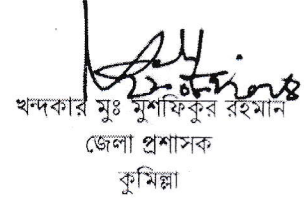 খন্দকার মুঃ মুশফিকুর রহমান
জেলা প্রশাসক
কুমিল্লা